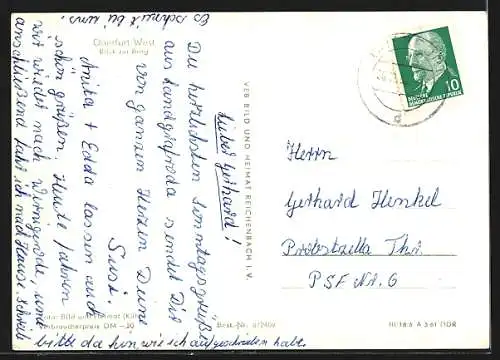 Querfurt West
Blick zur Burg
VEB BILD UND HEIMAT REICHENBACH I. V.
DEUTSCHE
DEMOKRATISCHE REPUBLIK
10
Lieber Gerhard!
Die herzlichsten Sonntagsgrüße
aus Landgrafroda sendet Dir
von ganzen Herzen Deine
Susi.
Anika + Edda lassen auch
schön grüßen. Heute fahren
wir wieder nach Wernigerode, und
anschließend fahr ich nach Hause. Schreib
bitte da hin wie ich aufgeschrieben habe.
Es schneit bei uns.
Herrn
Gerhard Henkel
Probstzella Thr.
PSF Nr. 6
Foto: Bild und Heimat
Verbraucherpreis DM -,20
Best.-Nr. 6/2409